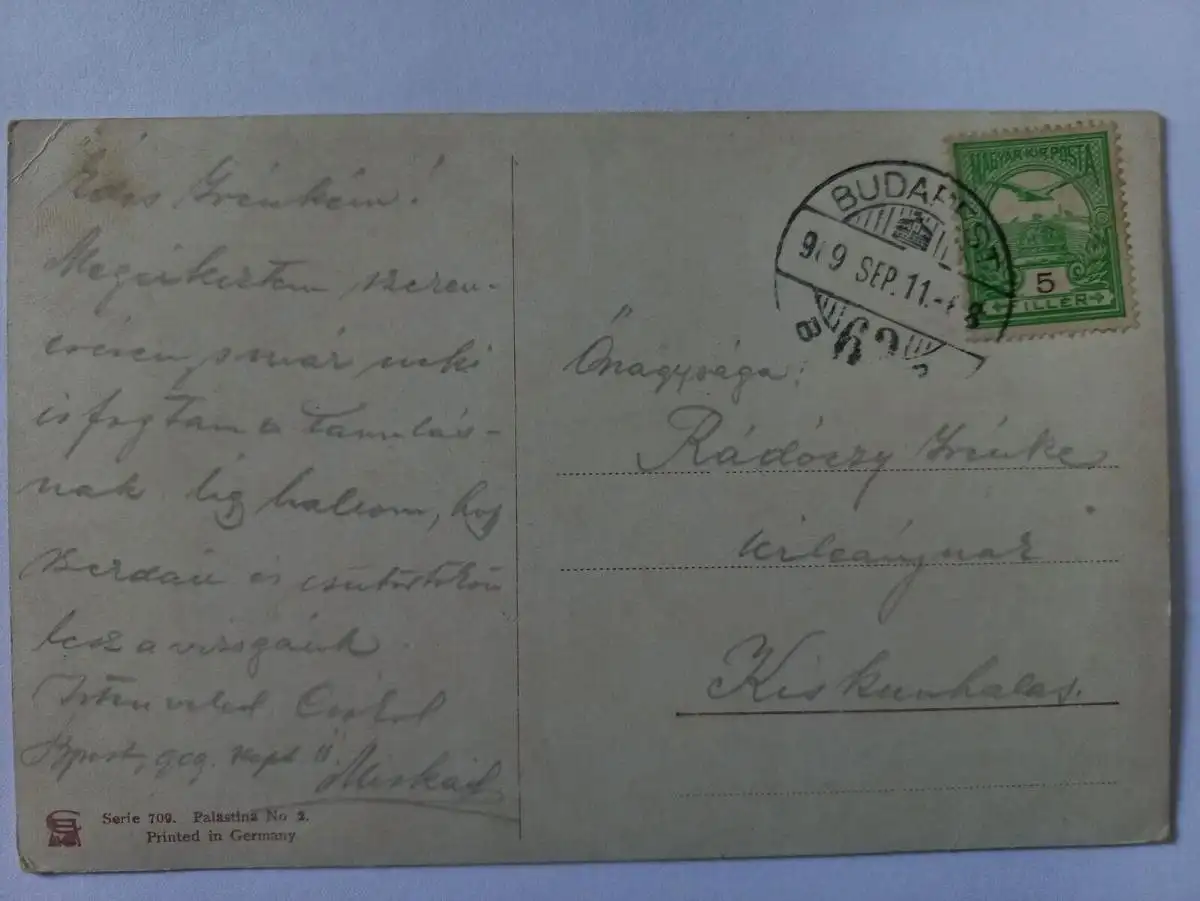 Édes Irénkém!
Megérkeztem szeren-
csésen, s már neki
is fogtam a tanulás-
nak. Alig hallom, hogy
szerdán és csütörtökön
lesz a vizsgánk.
Isten veled Csókol
Bpest, 909. szept 11. Miskád
Serie 709. Palästina No 2.
Printed in Germany
BUDAPEST
909 SEP. 11.
MAGYAR KIR. POSTA
5
FILLÉR
Őnagysága:
Rádóczy Irénke
úrleánynak
Kiskunhalas.